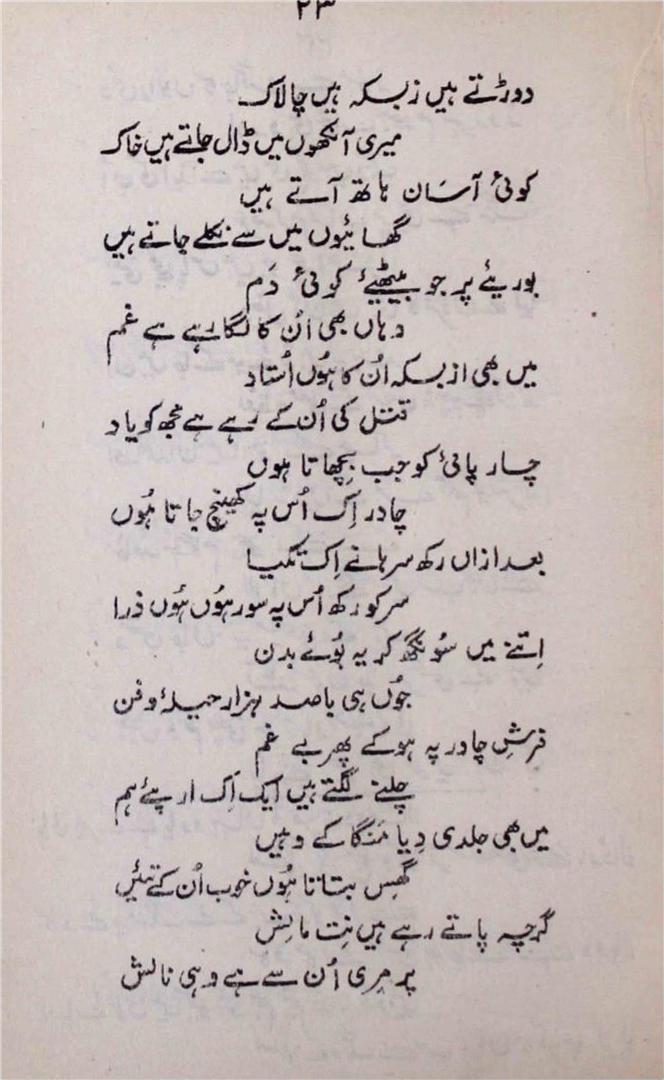 ۲۳
دوڑتے ہیں زبسکہ ہیں چالاک
میری آنکھوں میں ڈال جاتے ہیں خاک
کوئی آسان ہاتھ آتے ہیں
گھائیوں میں سے نکلے جاتے ہیں
بوریئے پر جو بیٹھیئے کوئی دَم
وہاں بھی اُن کا لگا رہے ہے غم
میں بھی از بسکہ اُن کا ہُوں اُستاد
قتل کی اُن کے رہے ہے مجھ کو یاد
چار پائی کو جب بِچھاتا ہوں
چادر اِک اُس پہ کھینچ جاتا ہُوں
بعد ازاں رکھ سرہانے اِک تکیا
سر کو رکھ اُس پہ سو رہُوں ہُوں ذرا
اِتنے میں سُونگھ کر یہ بُوئے بدن
جُوں ہی باصد ہزار حیلۂ و فن
فرشِ چادر پہ ہو کے پھر بے غم
چلنے لگتے ہیں ایک اَک ار پئے ہم
میں بھی جلدی دِیا مَنگا کے وہیں
گھِس بتاتا ہُوں خوب اُن کے تئیں
گرچہ پاتے رہے ہیں نِت مالِش
پر مِری اُن سے ہے وہی نالش